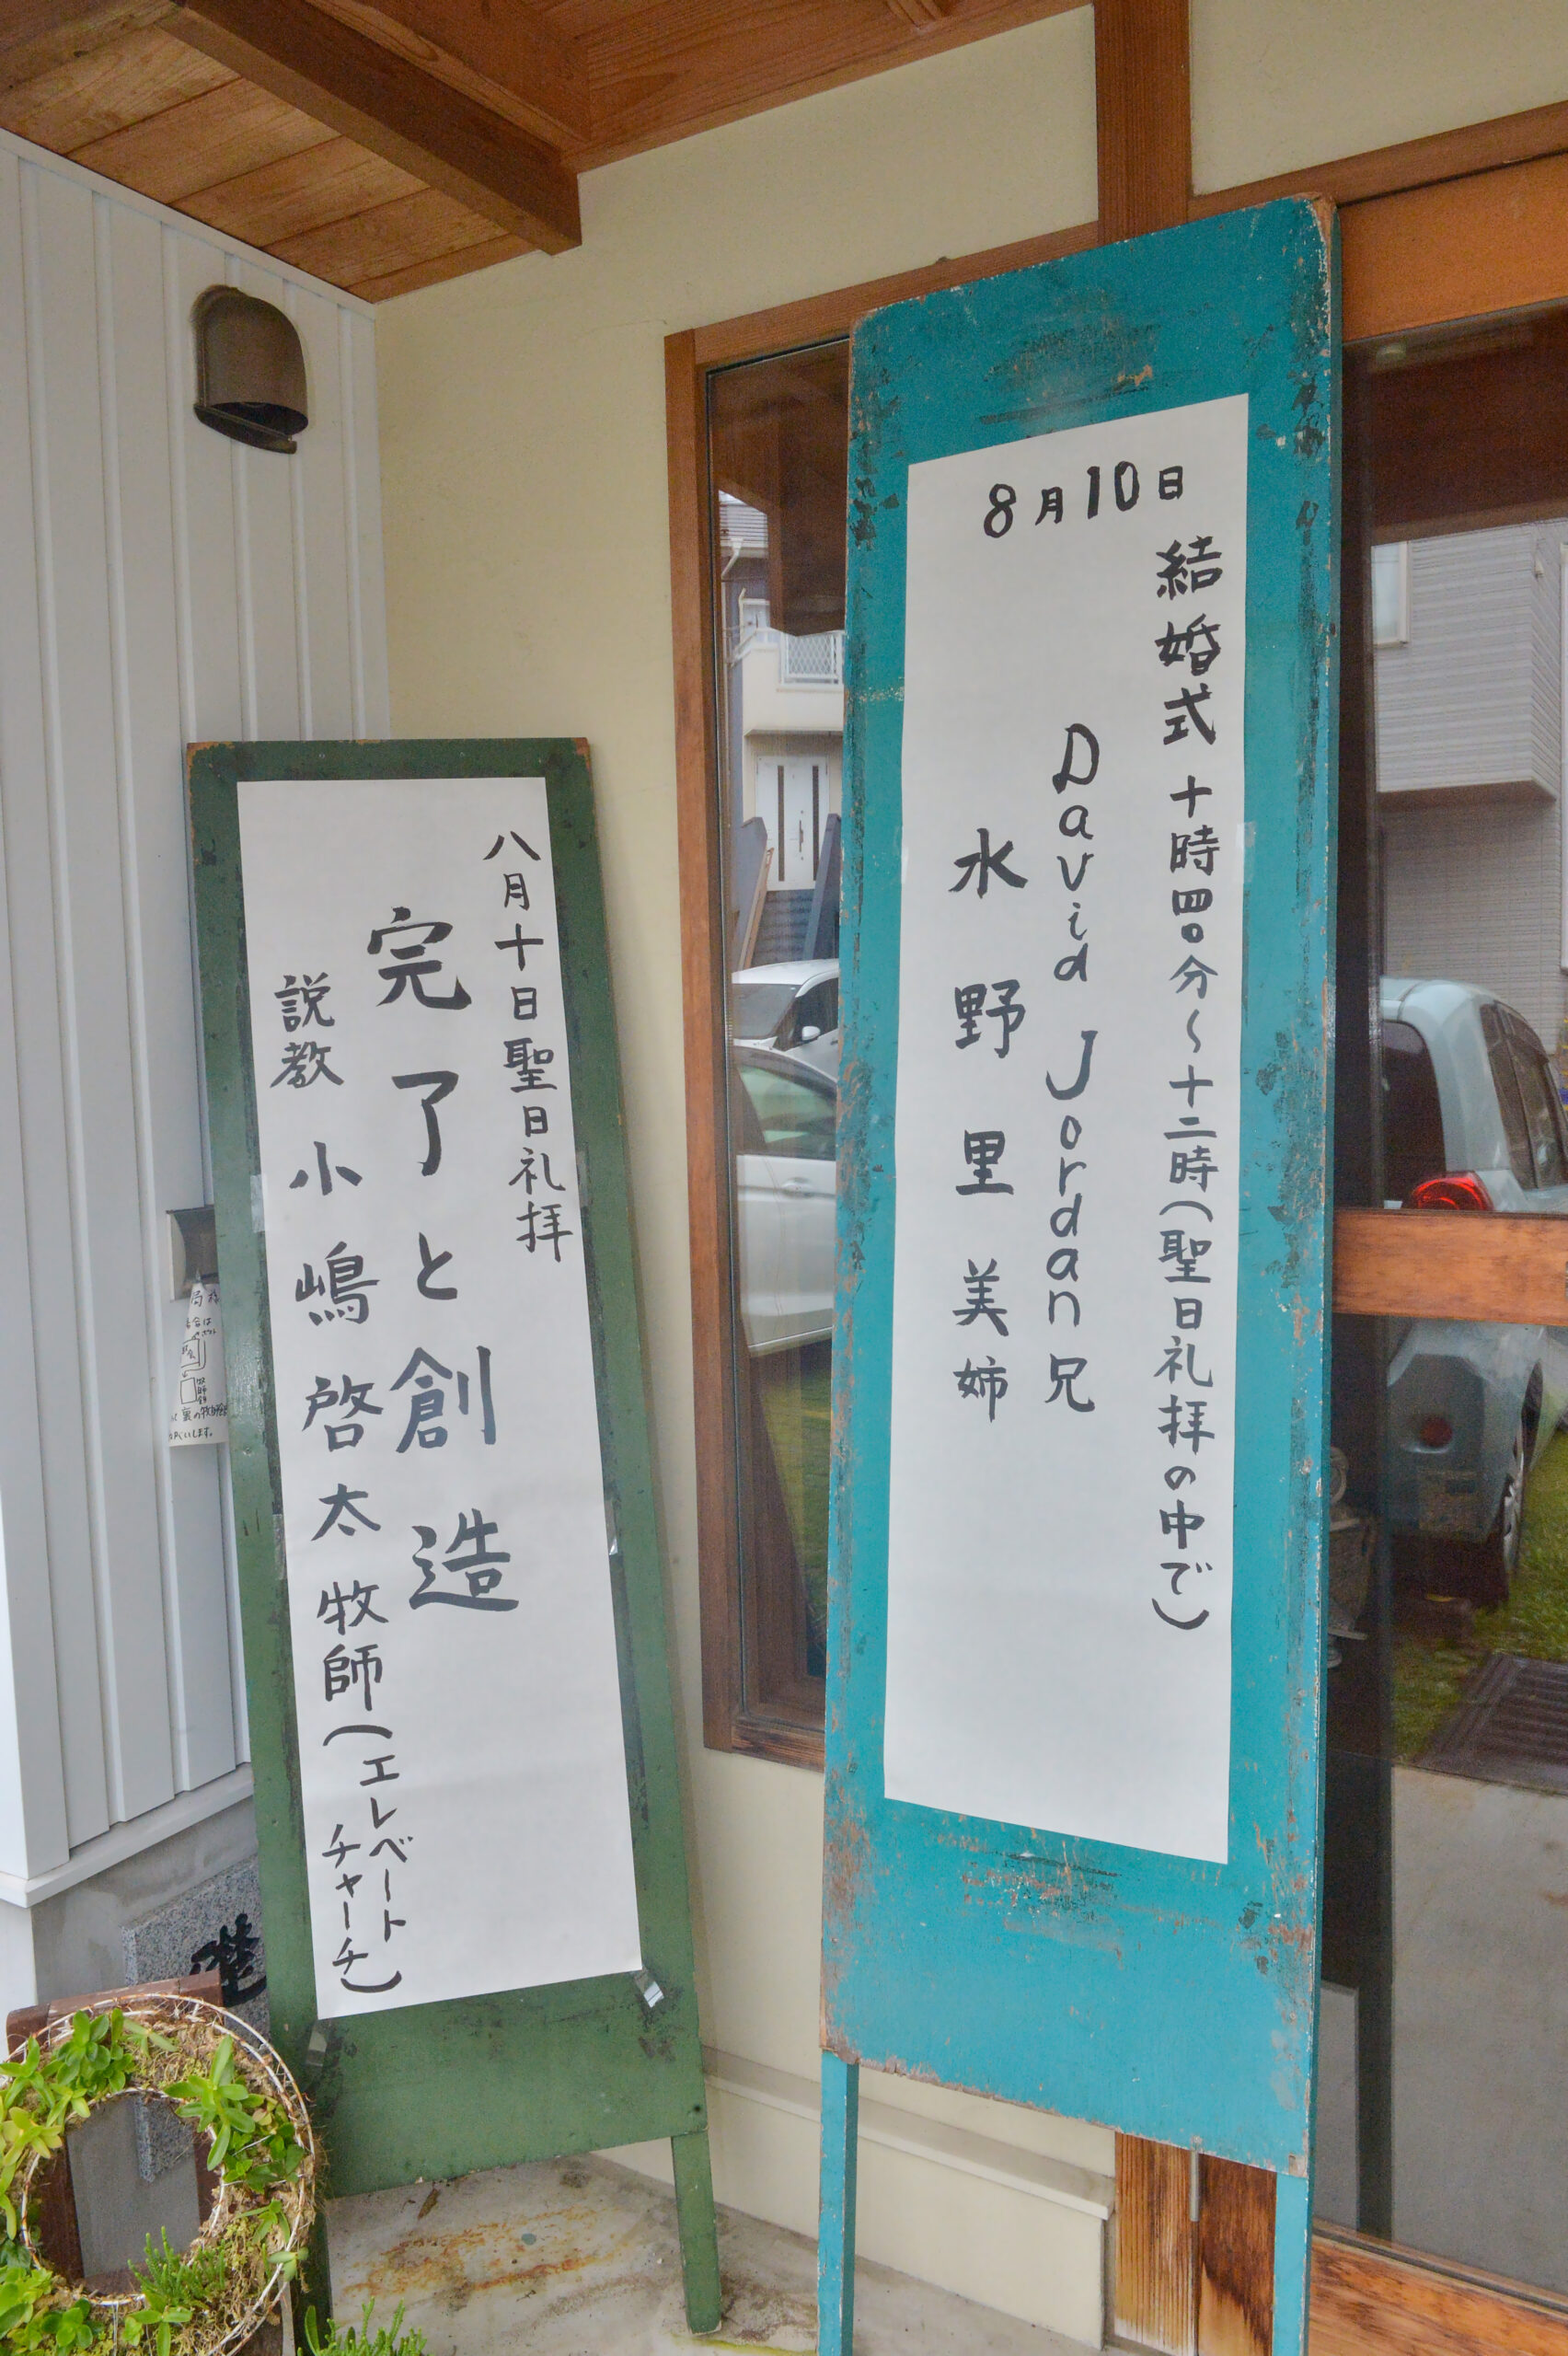 8月10日
結婚式 十時四〇分〜十二時(聖日礼拝の中で)
David Jordan兄
水野里美姉
八月十日聖日礼拝
完了と創造
説教 小嶋啓太牧師(エレベート
チャーチ)